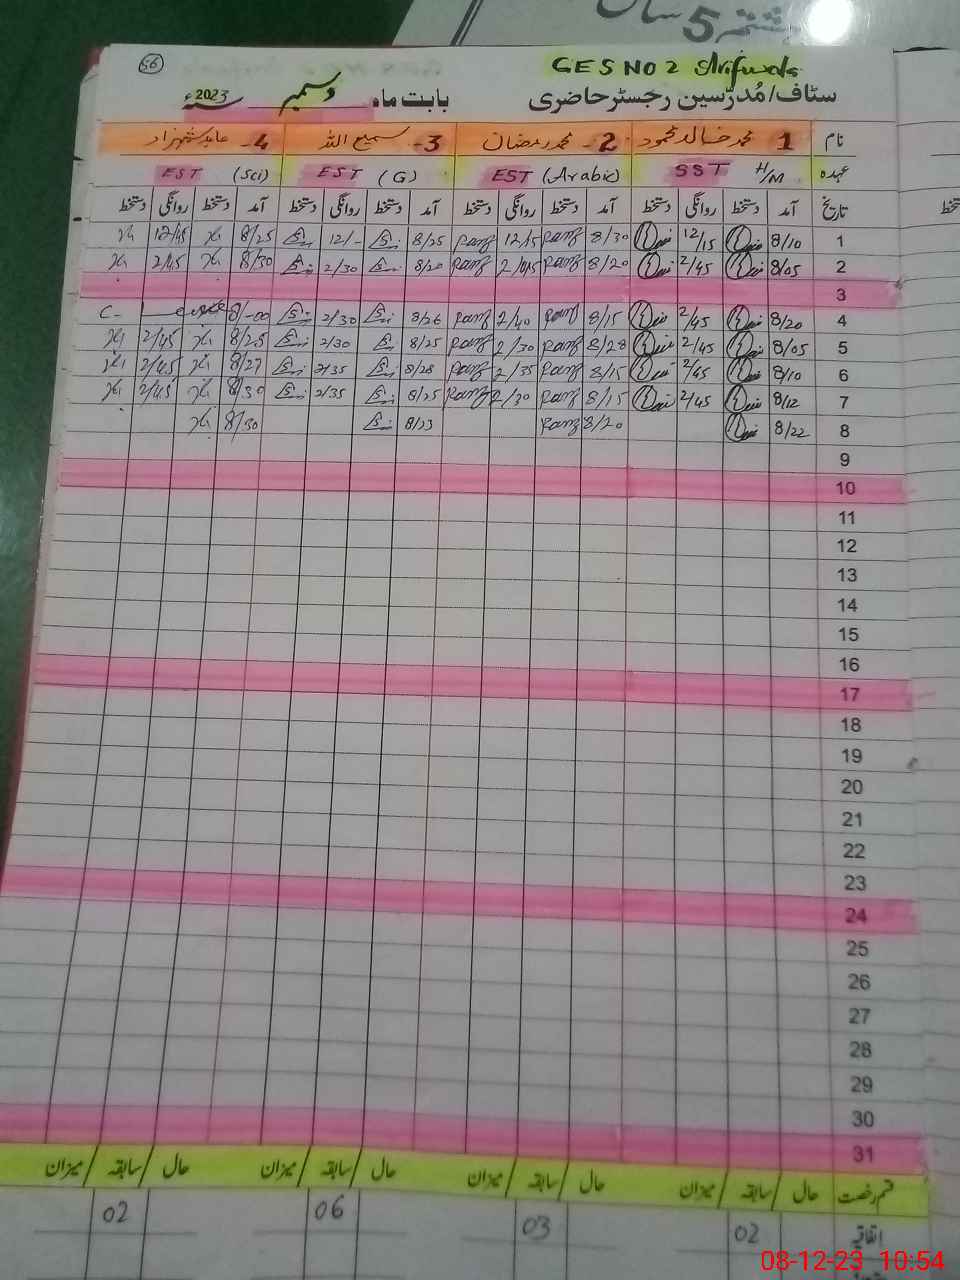 ششتم 5 سان
56
GES NO 2 Arifwala
سٹاف/مُدرّسین رجسٹر حاضری بابت ماہ دسمبر سنہ 2023ء
نام 1 محمد خالد محمود 2- محمد رمضان 3- سمیع اللہ 4-
عہدہ H/M SST EST (Arabic) EST (G) EST (Sci)
تاریخ آمد دستخط روانگی دستخط آمد دستخط روانگی دستخط آمد دستخط روانگی دستخط آمد دستخط روانگی دستخط
1 8/10 12/15 8/30 Ramz 12/15 Ramz 8/25 12/- 8/25 12/45
2 8/05 2/45 8/20 Ramz Ramz 8/20 2/30 8/30 2/45
3
4 8/20 2/45 8/15 Ramz 2/40 Ramz 8/26 2/30 8/-00 Leave C-
5 8/05 2/45 8/28 Ramz 2/30 Ramz 8/25 2/30 8/25 2/45
6 8/10 2/45 8/15 Ramz 2/35 Ramz 8/28 2/35 8/27 2/45
7 8/12 2/45 8/15 Ramz 2/30 Ramz 8/25 2/35 8/30 2/45
8 8/22 8/20 Ramz 8/23 8/30
9
10
11
12
13
14
15
16
17
18
19
20
21
22
23
24
25
26
27
28
29
30
31
قسم رخصت حال / سابقہ / میزان حال / سابقہ / میزان حال / سابقہ / میزان حال / سابقہ / میزان
اتفاقیہ 02 03 06 02
08-12-23 10:54